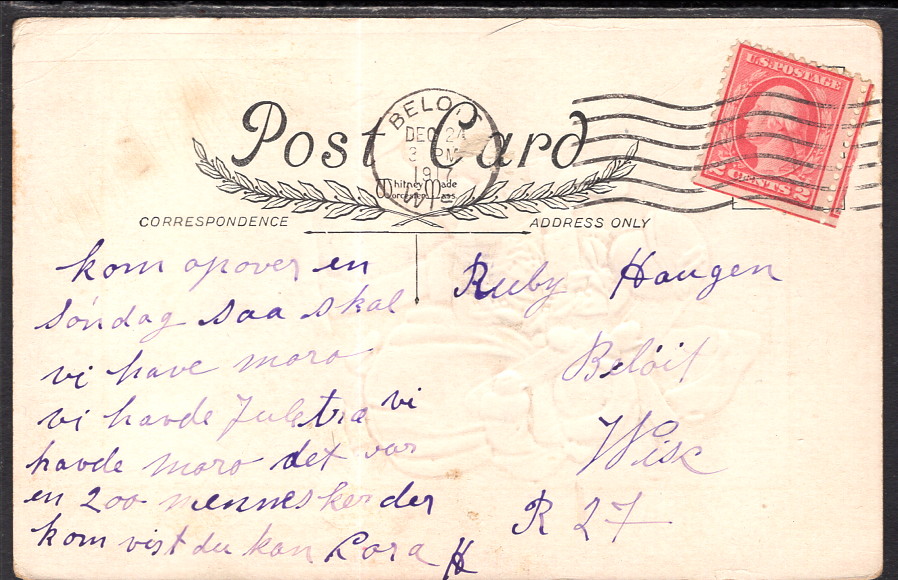 U.S. POSTAGE
2 CENTS 2
BELOIT
DEC 24
3 PM
1917
WIS
Post Card
Whitney Made
Worcester, Mass.
CORRESPONDENCE
ADDRESS ONLY
kom opover en
søndag saa skal
vi have moro
vi havde Juletra vi
havde moro det var
en 200 mennesker der
kom vist du kan Lora H
Ruby Haugen
Beloit
Wisc
R 27